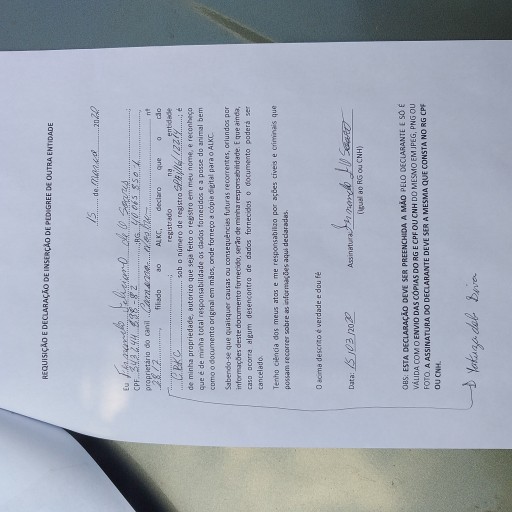 REQUISIÇÃO E DECLARAÇÃO DE INSERÇÃO DE PEDIGREE DE OUTRA ENTIDADE
15 de março 2020
Eu Fernando
CPF RG
proprietário do canil filiado ao ALKC, declaro que o cão nº
registrado na entidade
CBKC sob o número de registro é
de minha propriedade, autorizo que seja feito o registro em meu nome, e reconheço
que é de minha total responsabilidade os dados fornecidos e a posse do animal bem
como o documento original em mãos, onde forneço a cópia digital para o ALKC.
Sabendo-se que quaisquer causas ou consequências futuras recorrentes, oriundos por
informações deste documento fornecido, serão de minha responsabilidade. E que ainda,
caso ocorra algum desencontro de dados fornecidos o documento poderá ser
cancelado.
Tenho ciência dos meus atos e me responsabilizo por ações cíveis e criminais que
possam recorrer sobre as informações aqui declaradas.
O acima descrito é verdade e dou fé
Data: 15/03/2020 Assinatura Fernando
(Igual ao RG ou CNH)
OBS: ESTA DECLARAÇÃO DEVE SER PREENCHIDA A MÃO PELO DECLARANTE E SÓ É
VÁLIDA COM O ENVIO DAS CÓPIAS DO RG E CPF OU CNH DO MESMO EM JPEG, PNG OU
FOTO. A ASSINATURA DO DECLARANTE DEVE SER A MESMA QUE CONSTA NO RG CPF
OU CNH.